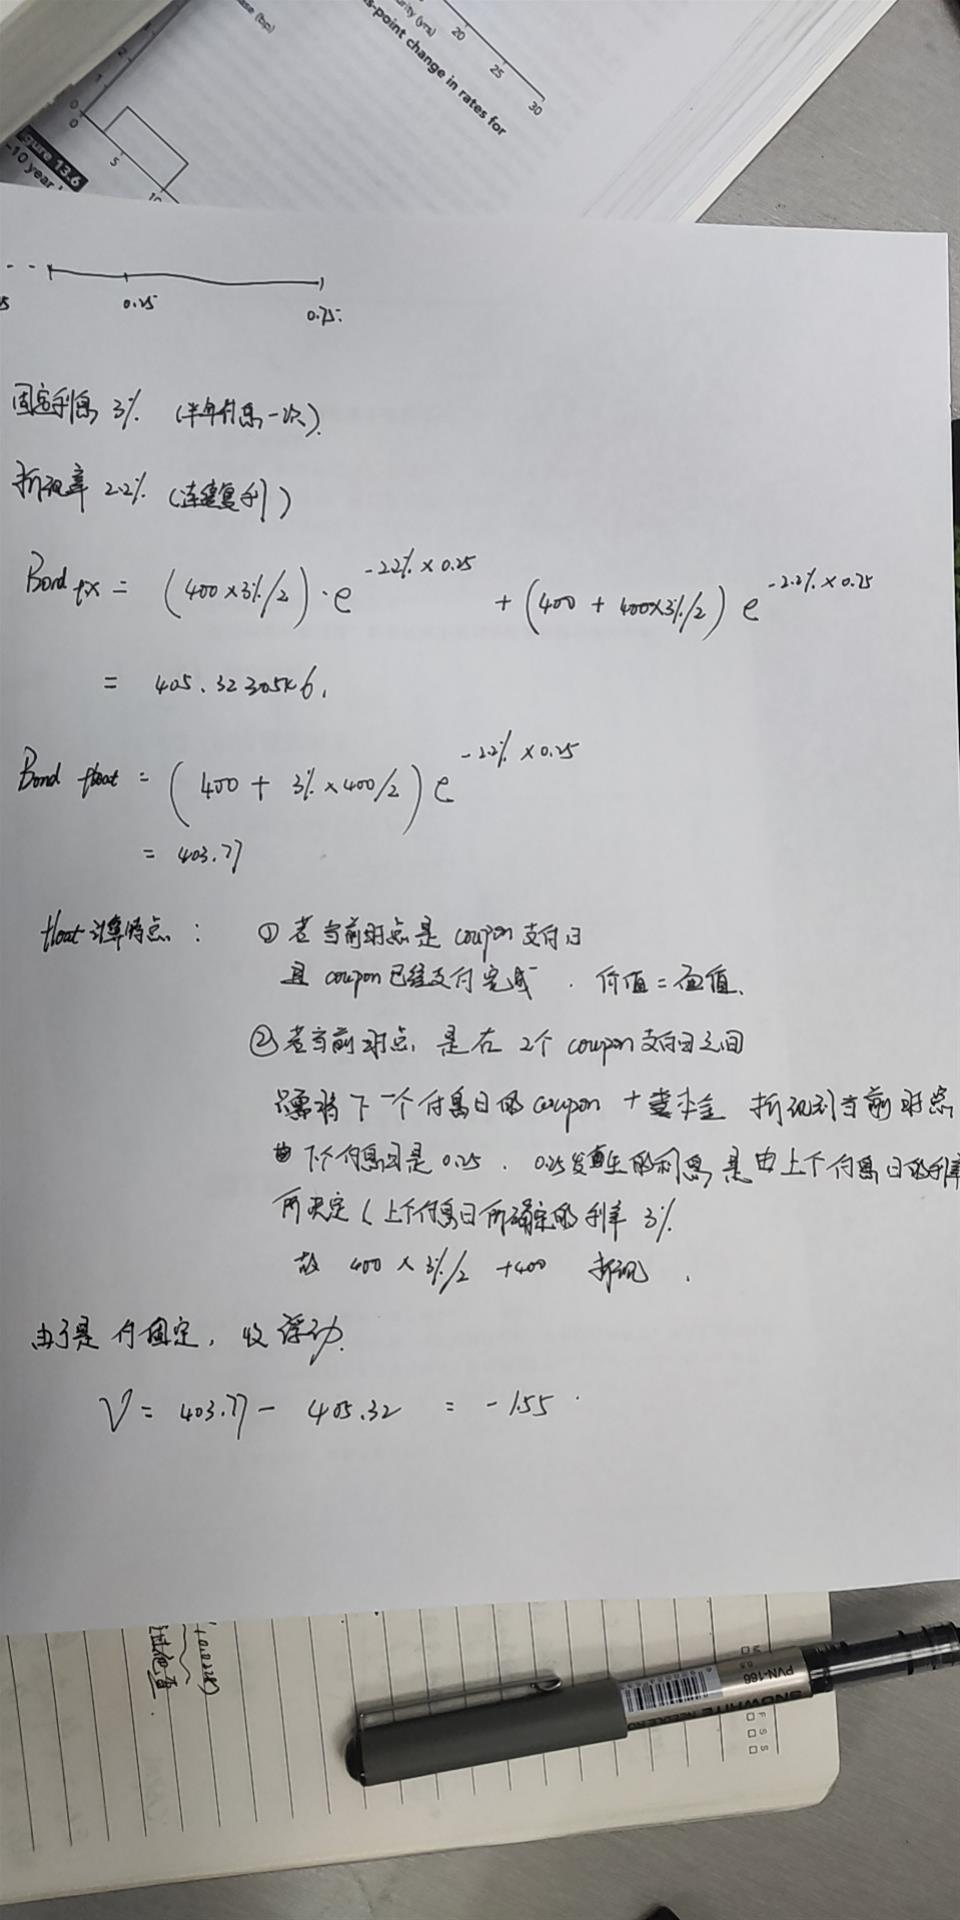 ase (bp)
urity (yrs)
20
25
30
s-point change in rates for
2
1
0
0
5
10
gure 13.6
-10 year
5
0.25
0.75.
固定利息 3% (半年付息一次).
折现率 2.2% (连续复利)
Bond fix = (400×3%/2)·e^-2.2%×0.25 + (400 + 400×3%/2) e^-2.2%×0.75
= 405.32305
Bond float = (400 + 3%×400/2) e^-2.2%×0.25
= 403.77
float 计算特点: ① 若当前时点是 coupon 支付日
且 coupon 已经支付完成. 价值=面值.
② 若当前时点, 是在 2个 coupon 支付日之间
只需将下一个付息日的 coupon + 本金 折现到当前时点
下个付息日是 0.25. 0.25发生的利息是由上个付息日的利率
所决定 (上个付息日所确定的利率 3%
故 400 × 3%/2 +400 折现.
由于是付固定, 收浮动.
V = 403.77 - 405.32 = -1.55
PVN-166
SNOWHITE NEEDLE RO
M
F S S